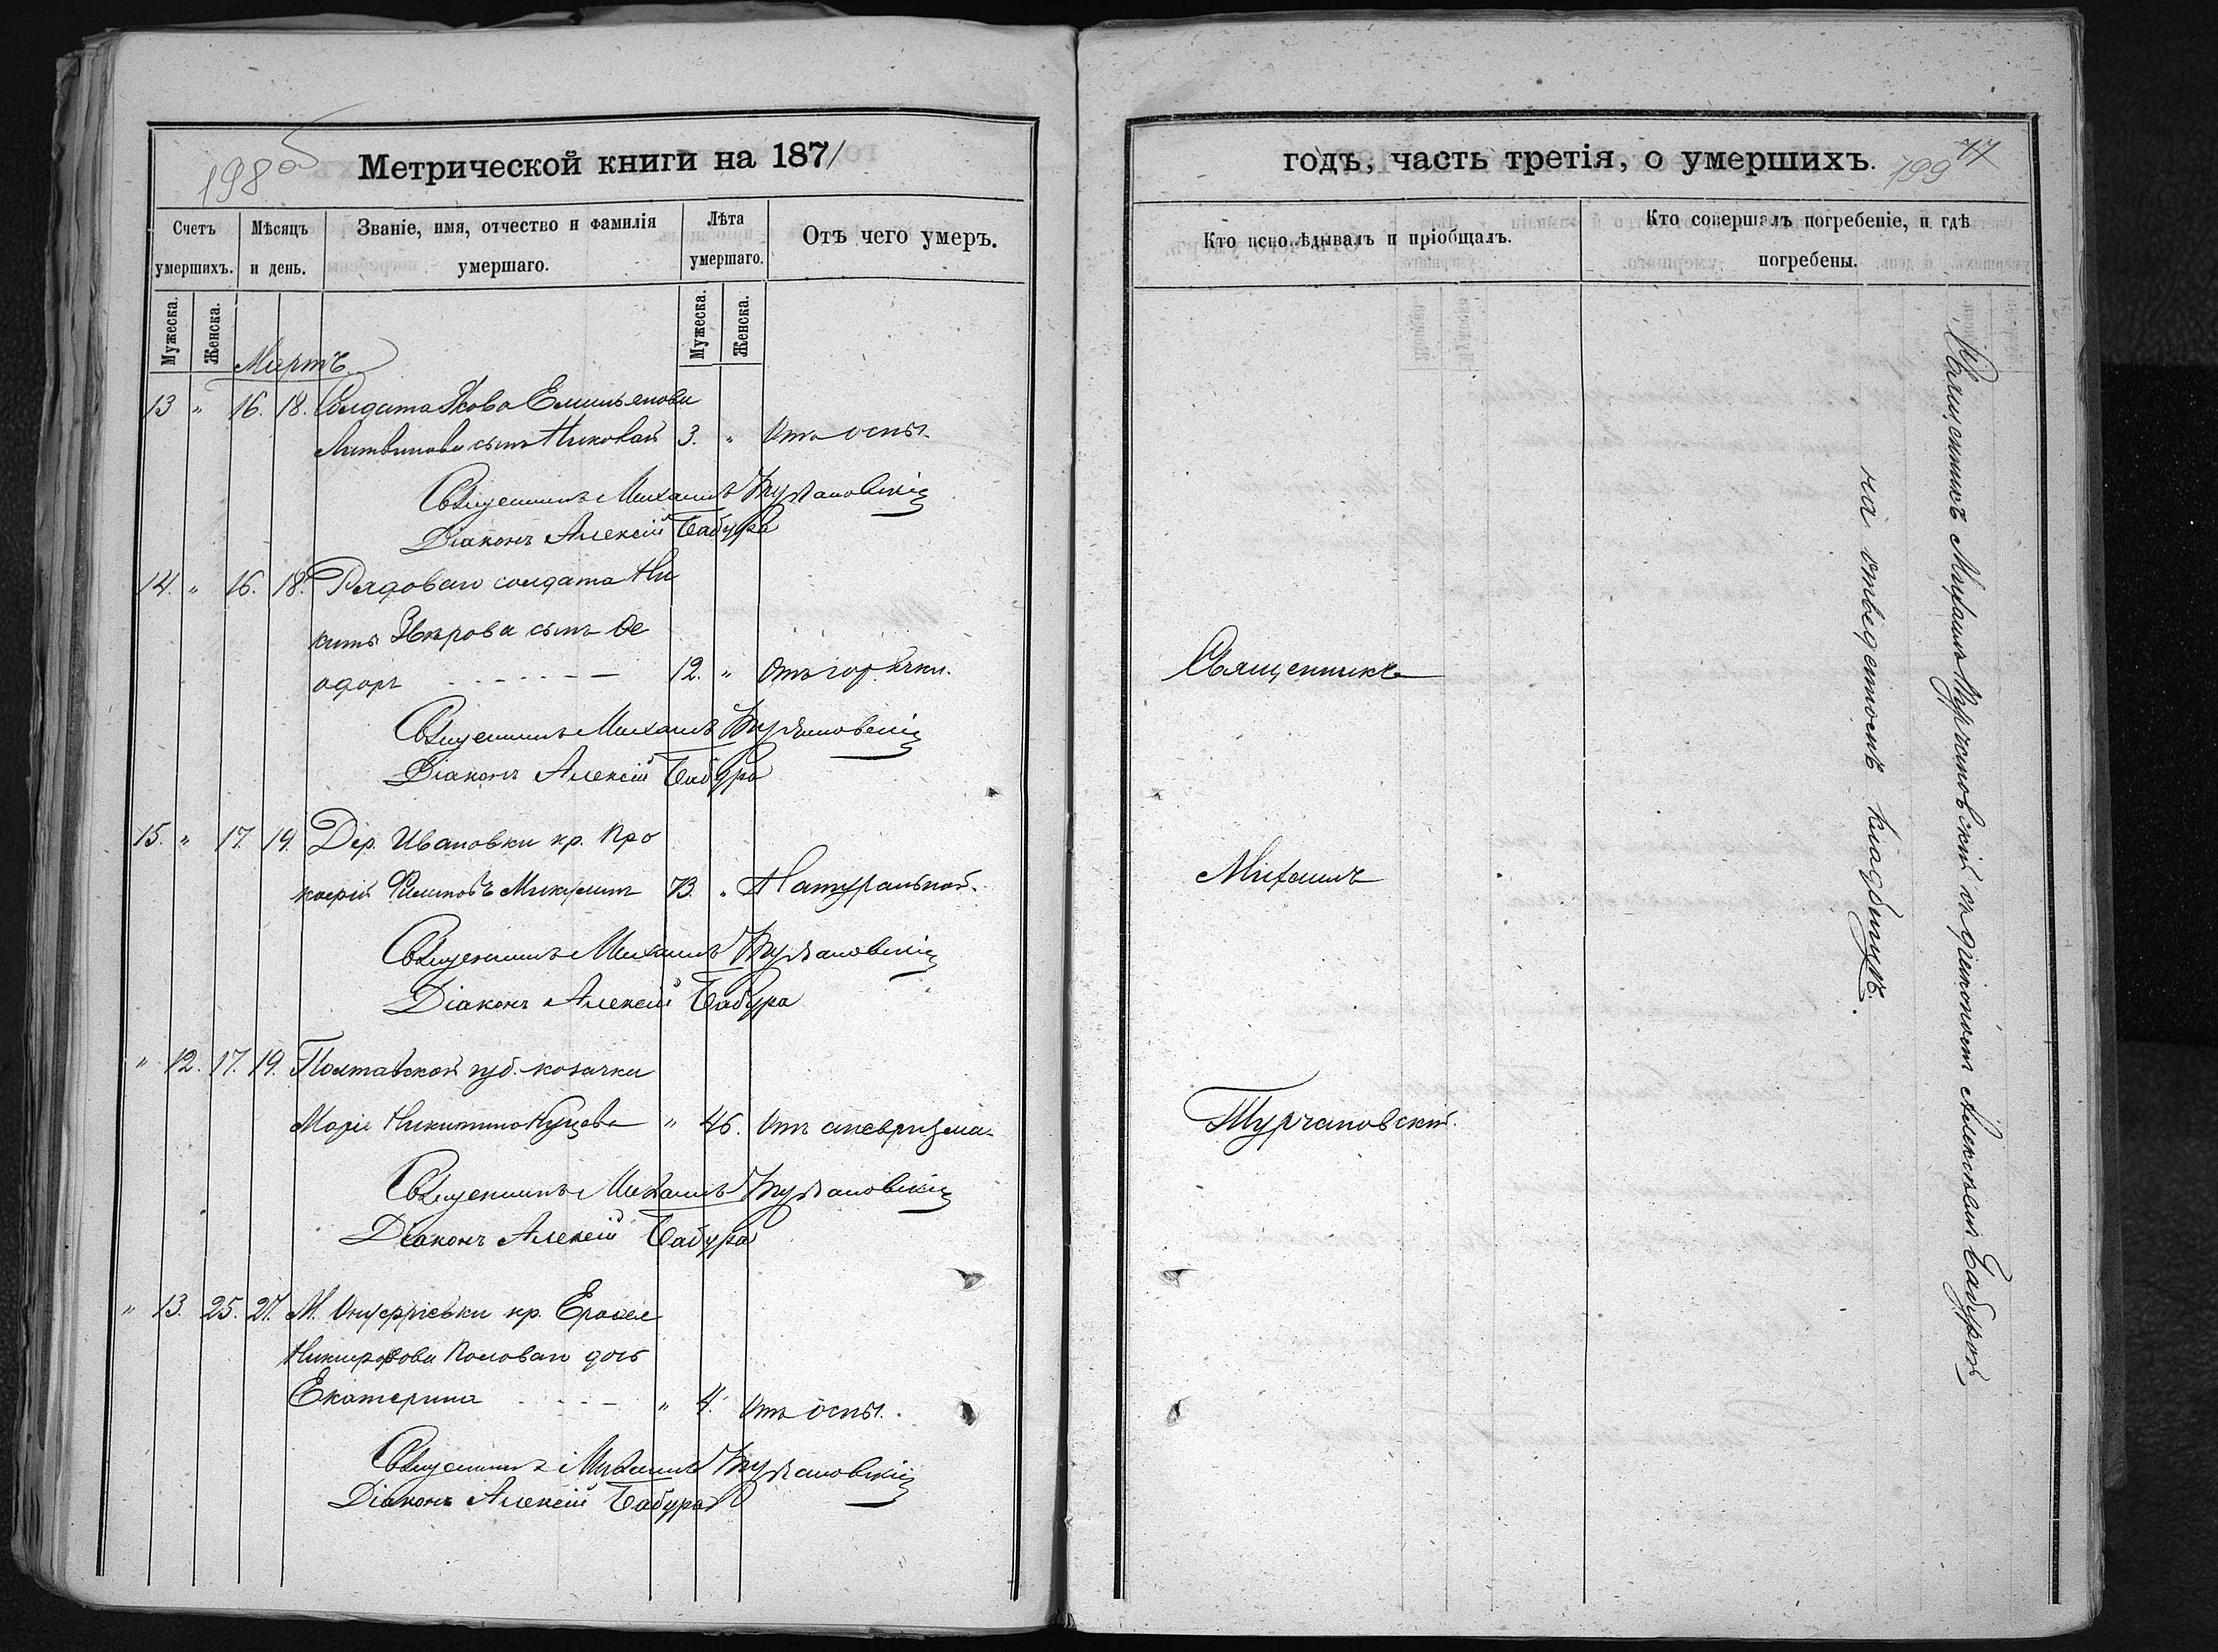 198 об
Метрической книги на 1871
Счетъ умершихъ.
Мѣсяцъ и день.
Званіе, имя, отчество и фамилія умершаго.
Лѣта умершаго.
Отъ чего умеръ.
Мужеска.
Женска.
Мужеска.
Женска.
Мартъ.
13 " 16. 18. Солдата Якова Емильянова
Литвинова сынъ Николай 3. " Отъ оспы.
Священникъ Михаилъ Турчановскій
Діаконъ Алексій Бабура
14. " 16. 18. Рядоваго солдата Ни
киты Звѣрова сынъ Ѳе
одоръ 12. " Отъ горячки.
Священникъ Михаилъ Турчановскій
Діаконъ Алексій Бабура
15. " 17. 19. Дер. Ивановки кр. Про
кофій Филиповъ Микулинъ 73. " Натуральной.
Священникъ Михаилъ Турчановскій
Діаконъ Алексій Бабура
" 12. 17. 19. Полтавской губ. козачки
Марія Никитина " 46. Отъ аневризма
Священникъ Михаилъ Турчановскій
Діаконъ Алексій Бабура
" 13. 25. 27. М. Онуфріевки кр.
Никифорова дочь
Екатерина " 4. Отъ оспы.
Священникъ Михаилъ Турчановскій
Діаконъ Алексій Бабура
годъ, часть третія, о умершихъ.
199 77
Кто исповѣдывалъ и пріобщалъ.
Кто совершалъ погребеніе, и гдѣ погребены.
Священникъ
Михаилъ
Турчановскій.
Священникъ Михаилъ Турчановскій съ діакономъ Алексѣемъ Бабурой
на отведенномъ кладбищѣ.